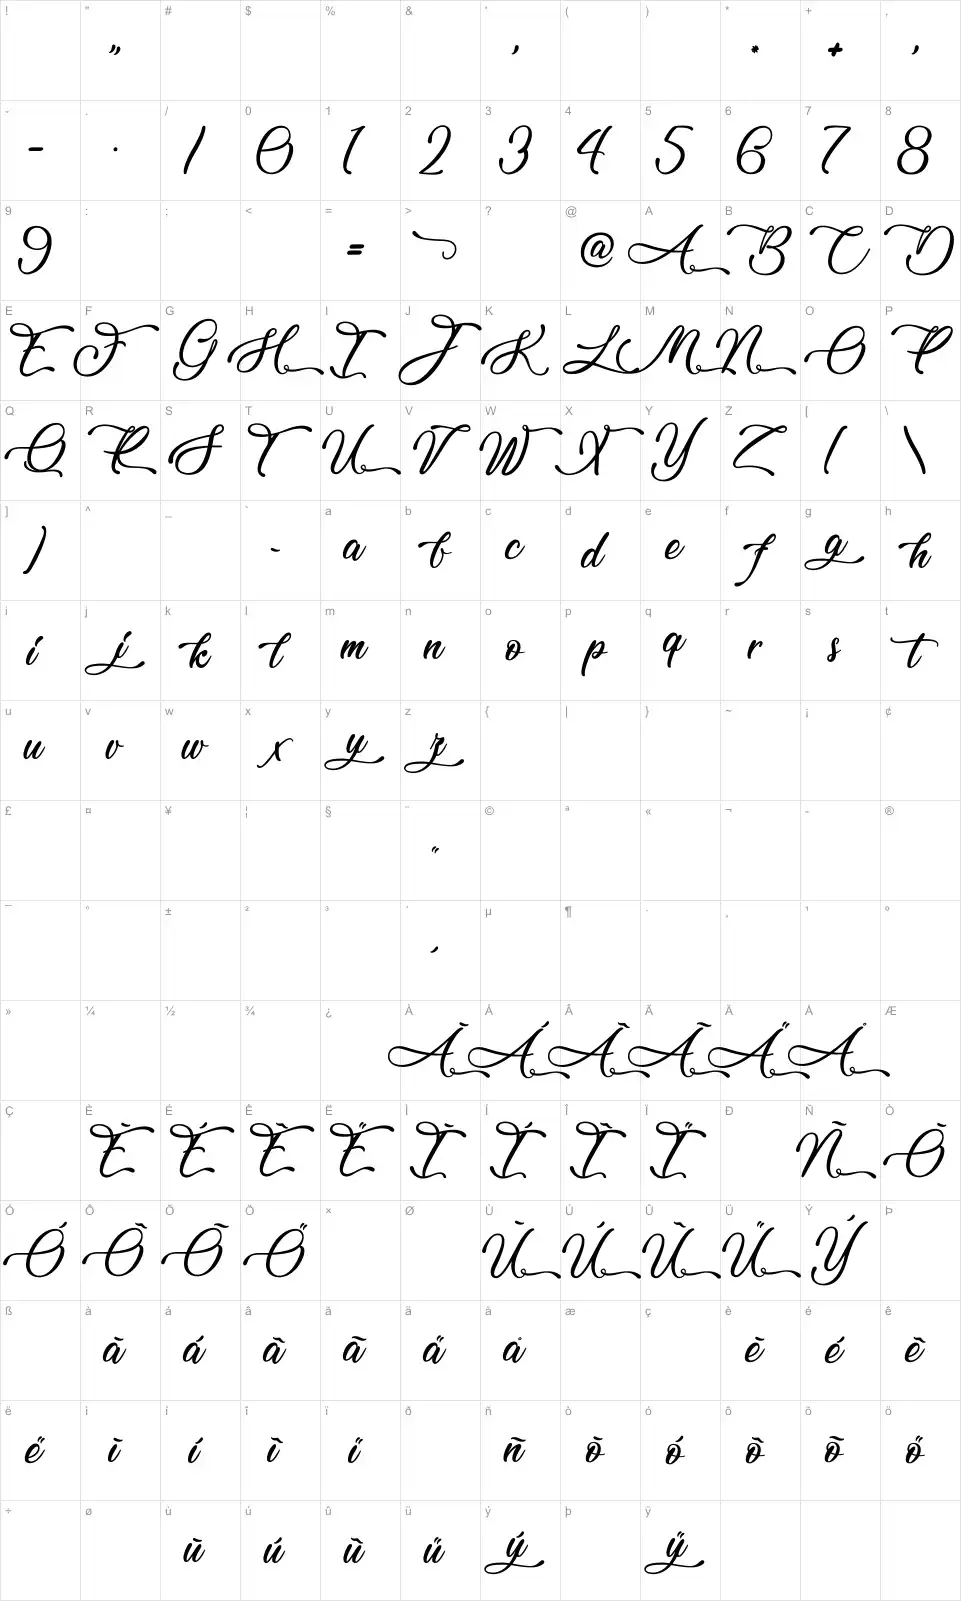 ! " # $ % & ' ( ) * + ,
" ' * + ,
- . / 0 1 2 3 4 5 6 7 8
- . / 0 1 2 3 4 5 6 7 8
9 : ; < = > ? @ A B C D
9 = > @ A B C D
E F G H I J K L M N O P
E F G H I J K L M N O P
Q R S T U V W X Y Z [ \
Q R S T U V W X Y Z ( \
] ^ _ ` a b c d e f g h
) - a b c d e f g h
i j k l m n o p q r s t
i j k l m n o p q r s t
u v w x y z { | } ~ ¡ ¢
u v w x y z
£ ¤ ¥ ¦ § ¨ © ª « ¬ - ®
¨
¯ ° ± ² ³ ´ µ ¶ · ¸ ¹ º
´
» ¼ ½ ¾ ¿ À Á Â Ã Ä Å Æ
À Á Â Ã Ä Å
Ç È É Ê Ë Ì Í Î Ï Ð Ñ Ò
È É Ê Ë Ì Í Î Ï Ñ Ò
Ó Ô Õ Ö × Ø Ù Ú Û Ü Ý Þ
Ó Ô Õ Ö Ù Ú Û Ü Ý
ß à á â ã ä å æ ç è é ê
à á â ã ä å è é ê
ë ì í î ï ð ñ ò ó ô õ ö
ë ì í î ï ñ ò ó ô õ ö
÷ ø ù ú û ü ý þ ÿ
ù ú û ü ý ÿ